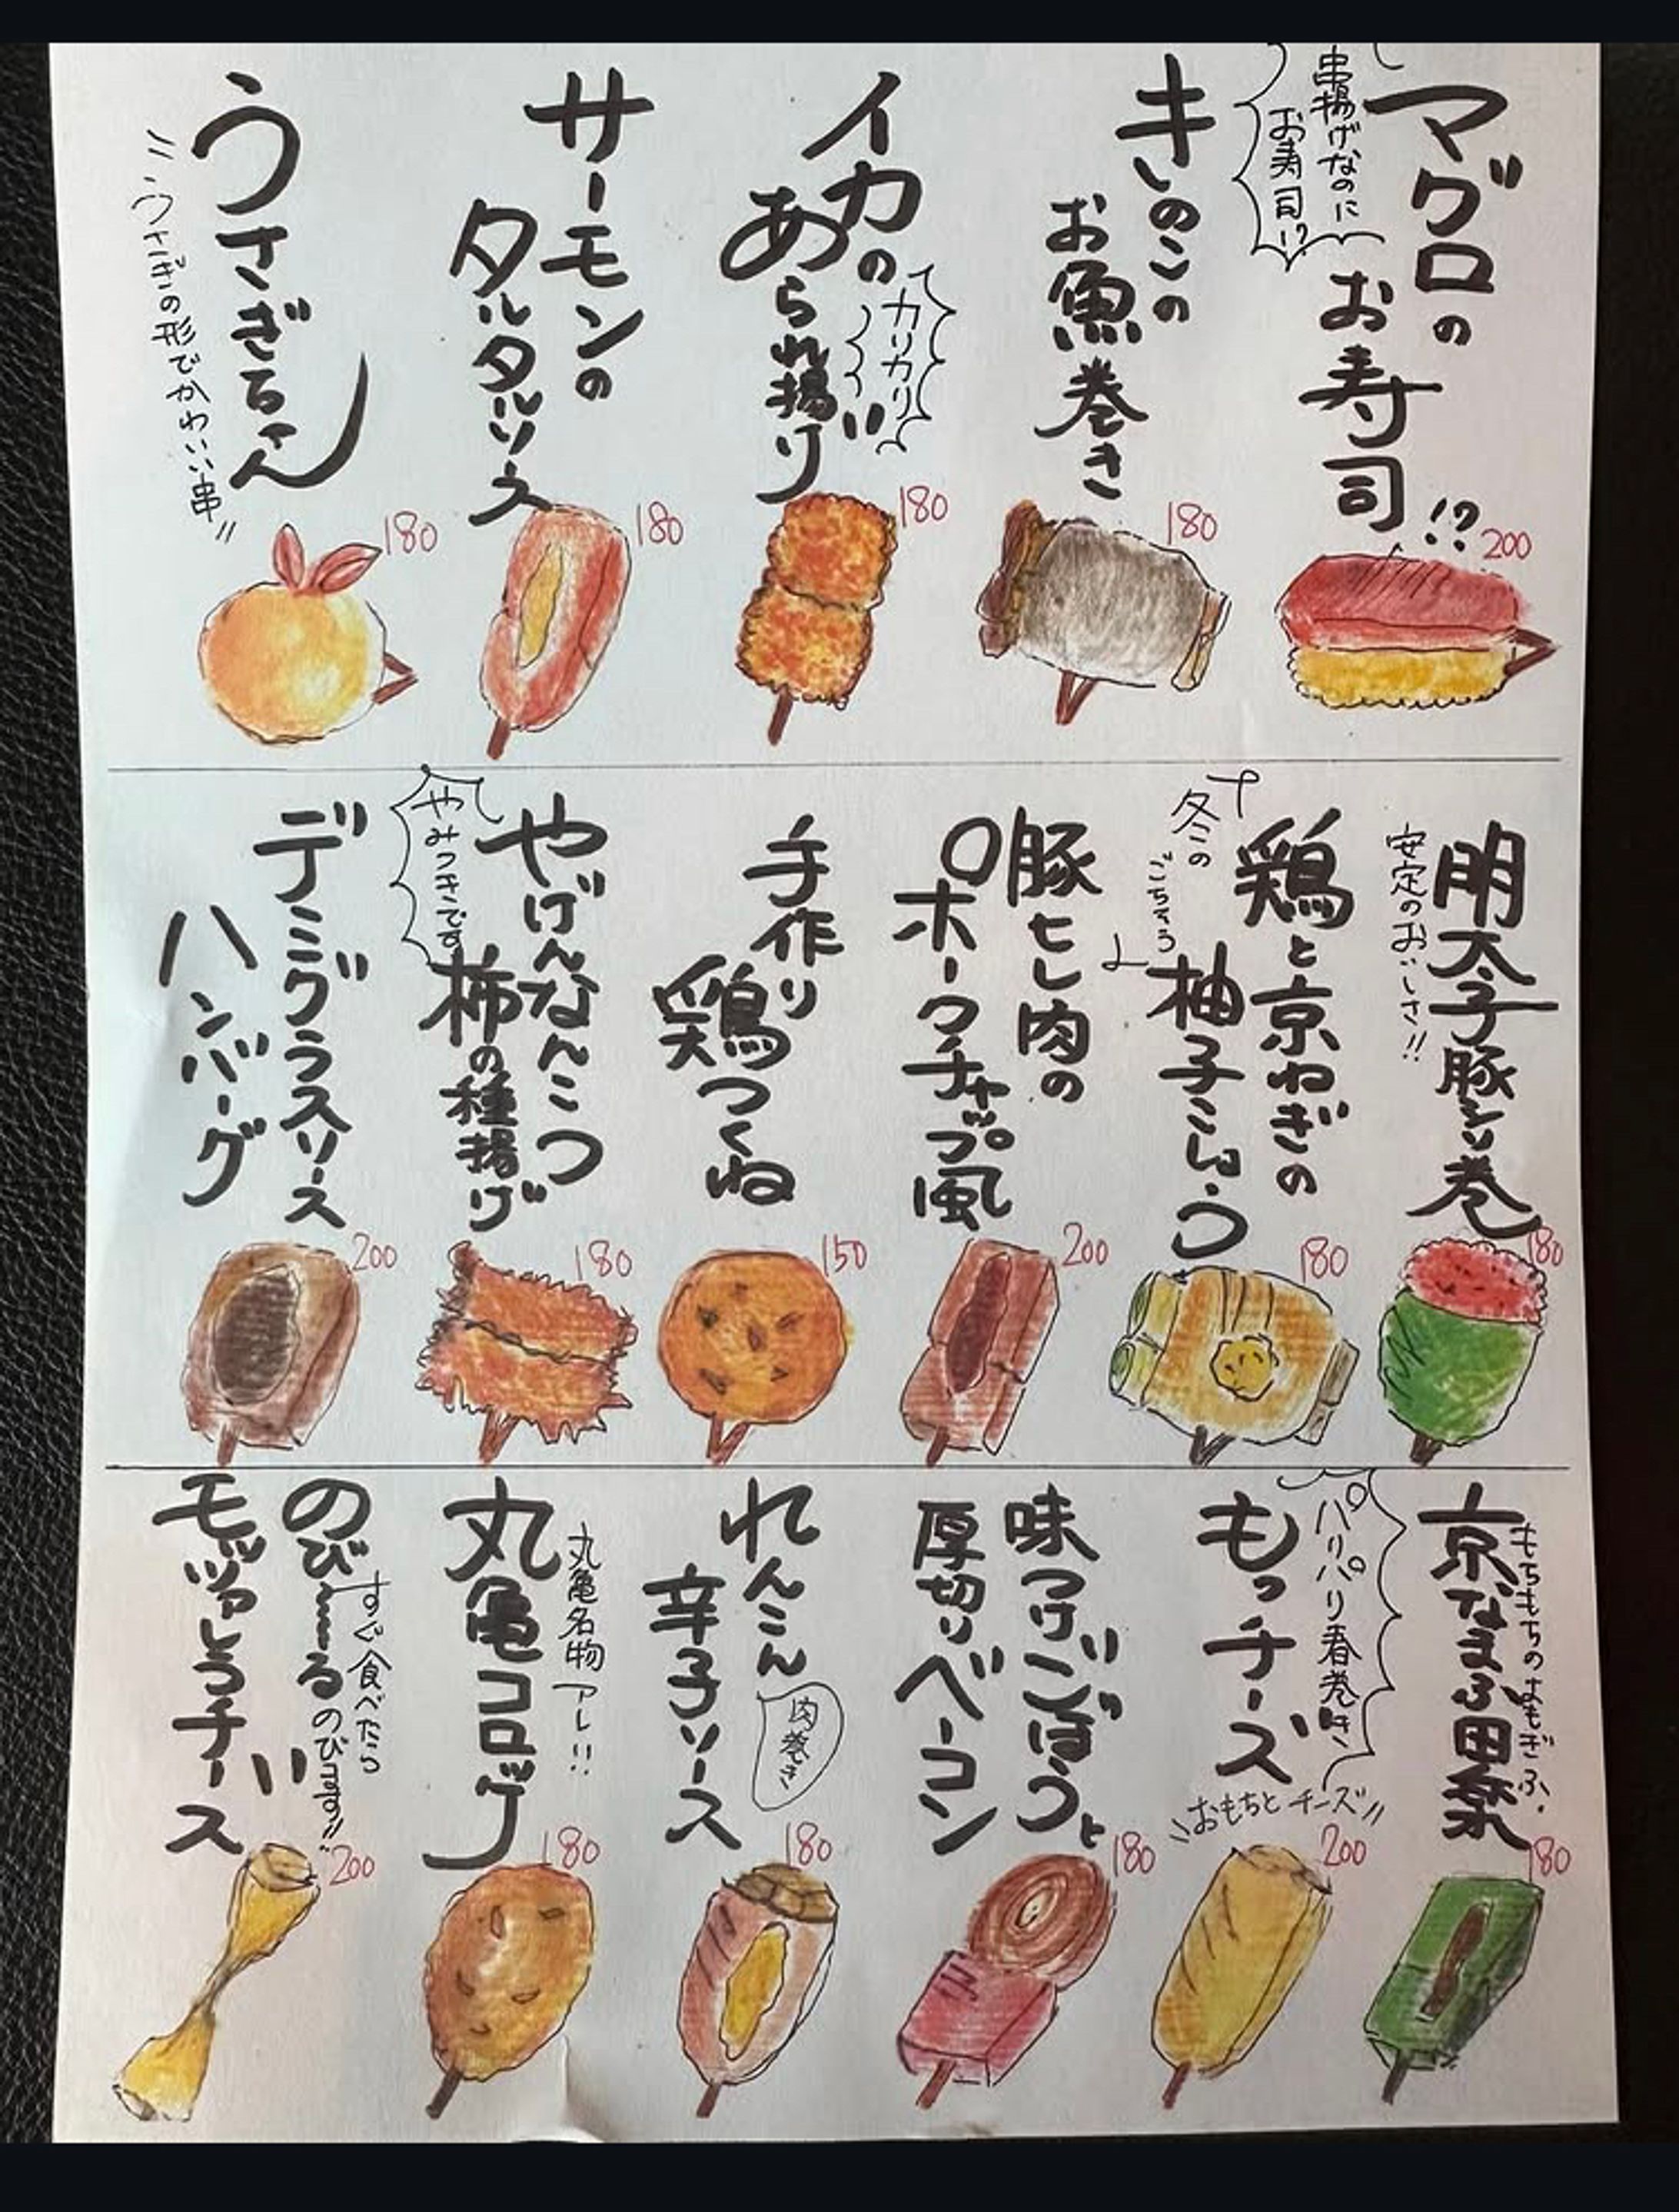 マグロの
お寿司!?
串揚げなのに
お寿司!?
200
きのこの
お魚巻き
180
イカの
あられ揚げ
カリカリ
180
サーモンの
タルタルソース
180
うさぎちゃん
うさぎの形でかわいい串
180
明太子豚シソ巻
安定のおいしさ!!
180
鶏と京ねぎの
柚子こしょう
冬の
ごちそう
180
豚モモ肉の
ポークチャップ風
200
手作り
鶏つくね
150
やげんなんこつ
柿の種揚げ
やみつきです
180
デミグラスソース
ハンバーグ
200
もちもちのよもぎふ
京なまふ田楽
180
パリパリ春巻き
もっチーズ
おもちとチーズ
200
味つけごぼうと
厚切りベーコン
180
れんこん
肉巻き
辛子ソース
180
丸亀名物アレ!!
丸亀コロッケ
180
すぐ食べたら
のびます!!
のび〜〜る
モッツァレラチーズ
200